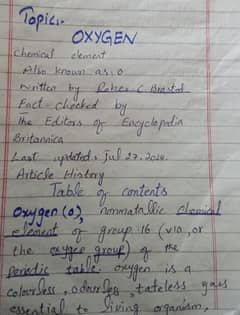 Topic:-
OXYGEN
Chemical element
Also known as: O
written by Robert C. Brasted
Fact-checked by
the Editors of Encyclopedia
Britannica
Last updated: Jul 27, 2024.
Article History
Table of contents
Oxygen (O), nonmatallic chemical
element of group 16 (VIa, or
the oxygen group) of the
Periodic table. oxygen is a
colourless, odourless, tateless gas
essential to living organism,